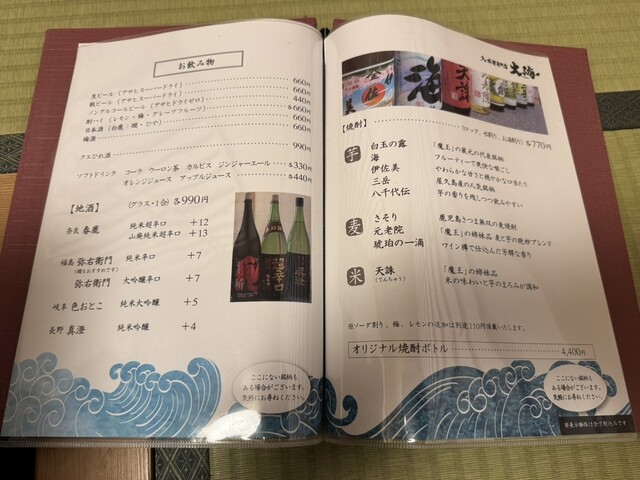 お飲み物
生ビール (アサヒスーパードライ) 660円
瓶ビール (アサヒスーパードライ) 660円
ノンアルコールビール (アサヒドライゼロ) 440円
酎ハイ (レモン・梅・グレープフルーツ) 各660円
日本酒 (白鹿:燗・ひや) 660円
梅酒 660円
クエひれ酒 990円
ソフトドリンク コーラ ウーロン茶 カルピス ジンジャーエール 各330円
オレンジジュース アップルジュース 各440円
【地酒】 (グラス・1合) 各990円
奈良 春鹿 純米超辛口 +12
山廃純米超辛口 +13
福島 弥右衛門 純米辛口 +7
弥右衛門 大吟醸辛口 +7
岐阜 色おとこ 純米大吟醸 +5
長野 真澄 純米吟醸 +4
ここにない銘柄も
ある場合がございます。
気軽にお尋ねください。
大海
【焼酎】 (ロック、水割り、お湯割り) 各770円
芋
白玉の露 「魔王」の蔵元の代表銘柄
海 フルーティーで爽快な喉ごし
伊佐美 やわらかな甘さと穏やかな口当たり
三岳 屋久島産の人気銘柄
八千代伝 芋の香りを残しつつ飲みやすい
麦
さそり 鹿児島さつま無双の麦焼酎
元老院 「魔王」の姉妹品 麦と芋の絶妙ブレンド
琥珀の一滴 ワイン樽で仕込んだ芳醇な香り
米
天誅 「魔王」の姉妹品
(てんちゅう) 米の味わいと芋のまろみが調和
※ソーダ割り、梅、レモンの追加は別途110円頂戴いたします。
オリジナル焼酎ボトル 4,400円
ここにない銘柄も
ある場合がございます。
気軽にお尋ねください。